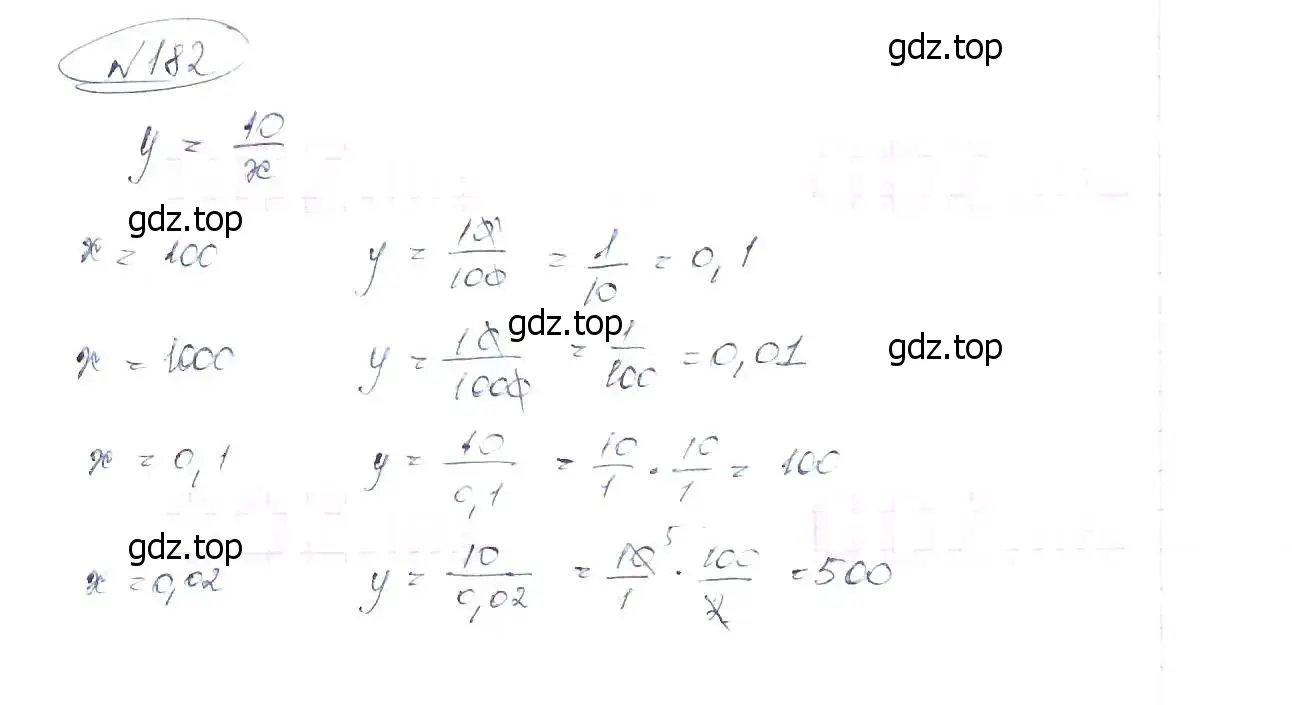 №182
gdz.top
y = 10/x
gdz.top
x = 100 y = 10/100 = 1/10 = 0,1
gdz.top
x = 1000 y = 10/1000 = 1/100 = 0,01 gdz.top
x = 0,1 y = 10/0,1 = 10/1 · 10/1 = 100
gdz.top
x = 0,02 y = 10/0,02 = 10/1 5 · 100/2 = 500